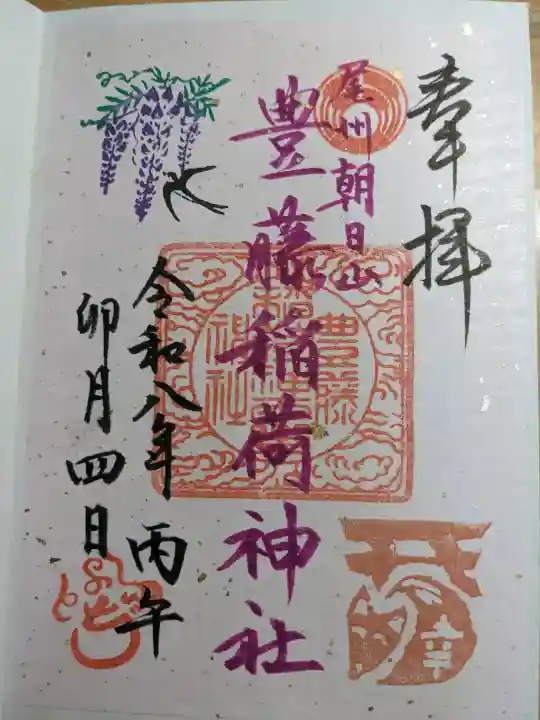 奉拝
尾州朝日山
豊藤稲荷神社
令和八年 丙午
卯月四日
豊藤
稲荷
神社
幸